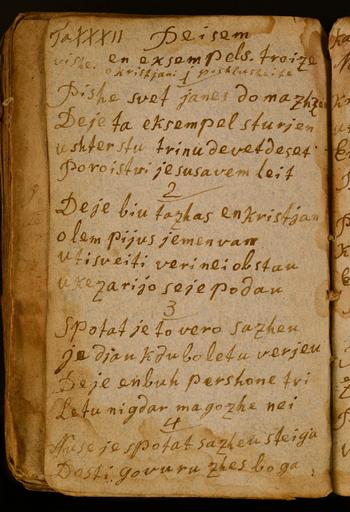 Ta XXXII Peisem
vishe. en exsempels. troize
o kristjani j poshlusheite
Pishe svet janes do mazhze
Deje ta eksempel sturjen
u shterstu trinu devet deset
Poroistvi jesusavem leit
2
Deje biu tazhas en kristjan
olem pijus jemenvan
utisveiti veri nei obstau
u kezarijo se je podau
3
Spotat je to vero sazheu
je djau kdu bo letu verjeu
Deje enbuh pershone tri
Letu nigdar magozhe nei
4
Nuse je spotat sazheu steiga
Dosti govuru zhes boga